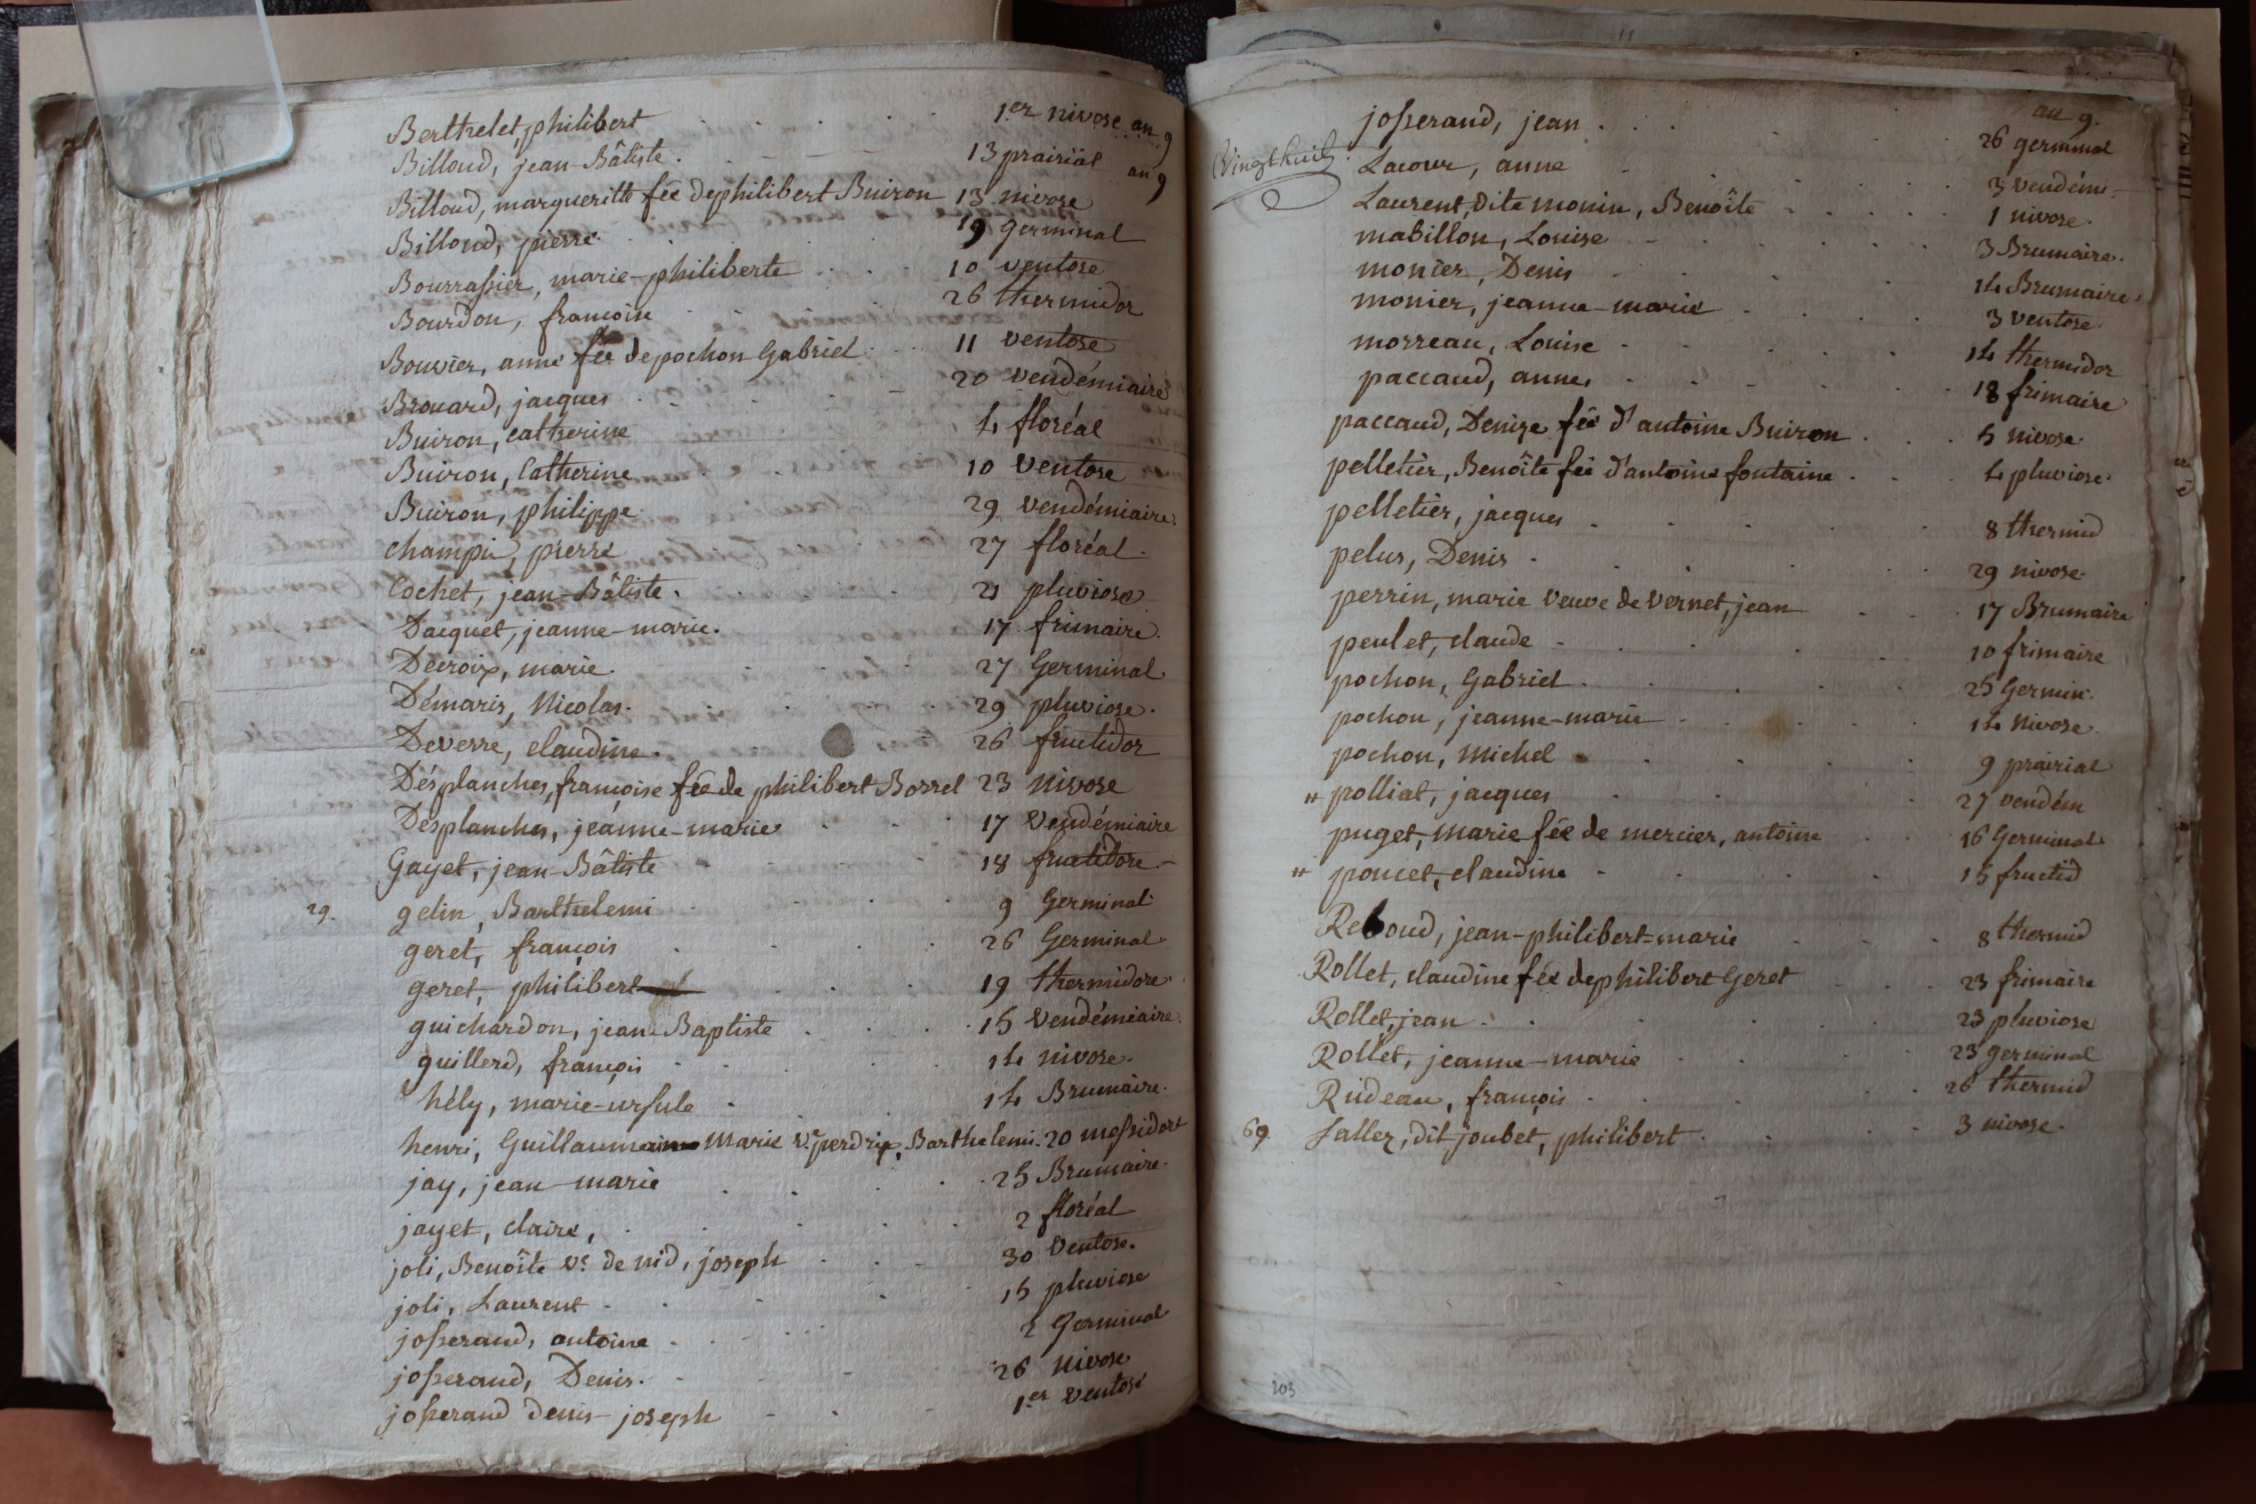 Berthelet, philibert . . . . . 1er nivose an 9
Billoud, jean-Bâtiste . 13 prairial an 9
Billoud, margueritte fée de philibert Buiron 13 nivose
Billoud, pierre . 19 germinal
Bourrassier, marie-philiberte . . . 10 ventose
Bourdon, françoise 26 thermidor
Bouvier, anne fée de pochon Gabriel . . . 11 ventose
Brouard, jacques . . . 20 vendémiaire
Buiron, catherine 4 floréal
Buiron, Catherine . . 10 ventose
Buiron, philippe 29 vendémiaire
champin, pierre 27 floréal .
Cochet, jean-Bâtiste . . 21 pluviose
Dacquet, jeanne-marie . 17 frimaire .
Décroix, marie . . . 27 Germinal
Démaris, Nicolas . . . 29 pluviose .
Deverre, claudine . 26 fructidor
Désplanches, françoise fée de philibert Borrel 23 nivose
Désplanches, jeanne-marie . . . 17 vendémiaire
Gayet, jean-Bâtiste 18 fructidore
29. gelin, Barthelemi . . . 9 Germinal
geret, françois . . . 26 Germinal
geret, philibert . . . 19 thermidore
guichardon, jean-Baptiste . . . 15 vendémiaire
guillerd, françois . . . 14 nivose
hély, marie-ursule . 14 Brumaire .
henri, Guillaume Marie ve perdrix, Barthelemi . 20 messidore
jay, jean-marie . . . 25 Brumaire .
jayet, claire, . . . 2 floréal
joli, Benoîte ve de nid, joseph . . . 30 ventose .
joli, Laurent . . . 15 pluviose
josserand, antoine . . . 2 Germinal
josserand, Denis . . . 26 nivose
josserand denis-joseph . . . 1er ventose
an 9.
josserand, jean . . . 26 germinal
Vingthuit . Lacour, anne . . . 3 vendém
Laurent, dite monin, Benoîte . . . 1 nivose
mabillon, Louise . . . 3 Brumaire .
monier, Denis . . . 14 Brumaire
monier, jeanne-marie . . . 3 ventose
morreau, Louise . . . 14 thermidor
paccaud, anne . . . 18 frimaire
paccaud, Denize fée d'antoine Buiron . . . 5 nivose
pelletier, Benoîte fée d'antoine fontaine . . . 4 pluviose
pelletier, jacques . . . 8 thermid
pelus, Denis . . . 29 nivose
perrin, marie veuve de vernet, jean . . . 17 Brumaire
peulet, claude . . . 10 frimaire
pochon, Gabriel . . . 25 Germin .
pochon, jeanne-marie . . . 14 nivose
pochon, Michel . . . 9 prairial
" polliat, jacques . . . 27 vendém
puget, marie fée de mercier, antoine . . . 16 Germinal
" poncet, claudine . . . 15 fructid
Reboud, jean-philibert-marie . . . 8 thermid
Rollet, claudine fée de philibert Geret . . . 23 frimaire
Rollet, jean . . . 23 pluviose
Rollet, jeanne-marie . . . 23 germinal
Rudeau, françois . . . 26 thermid
69. Sallez, dit joubet, philibert . . . 3 nivose .
203